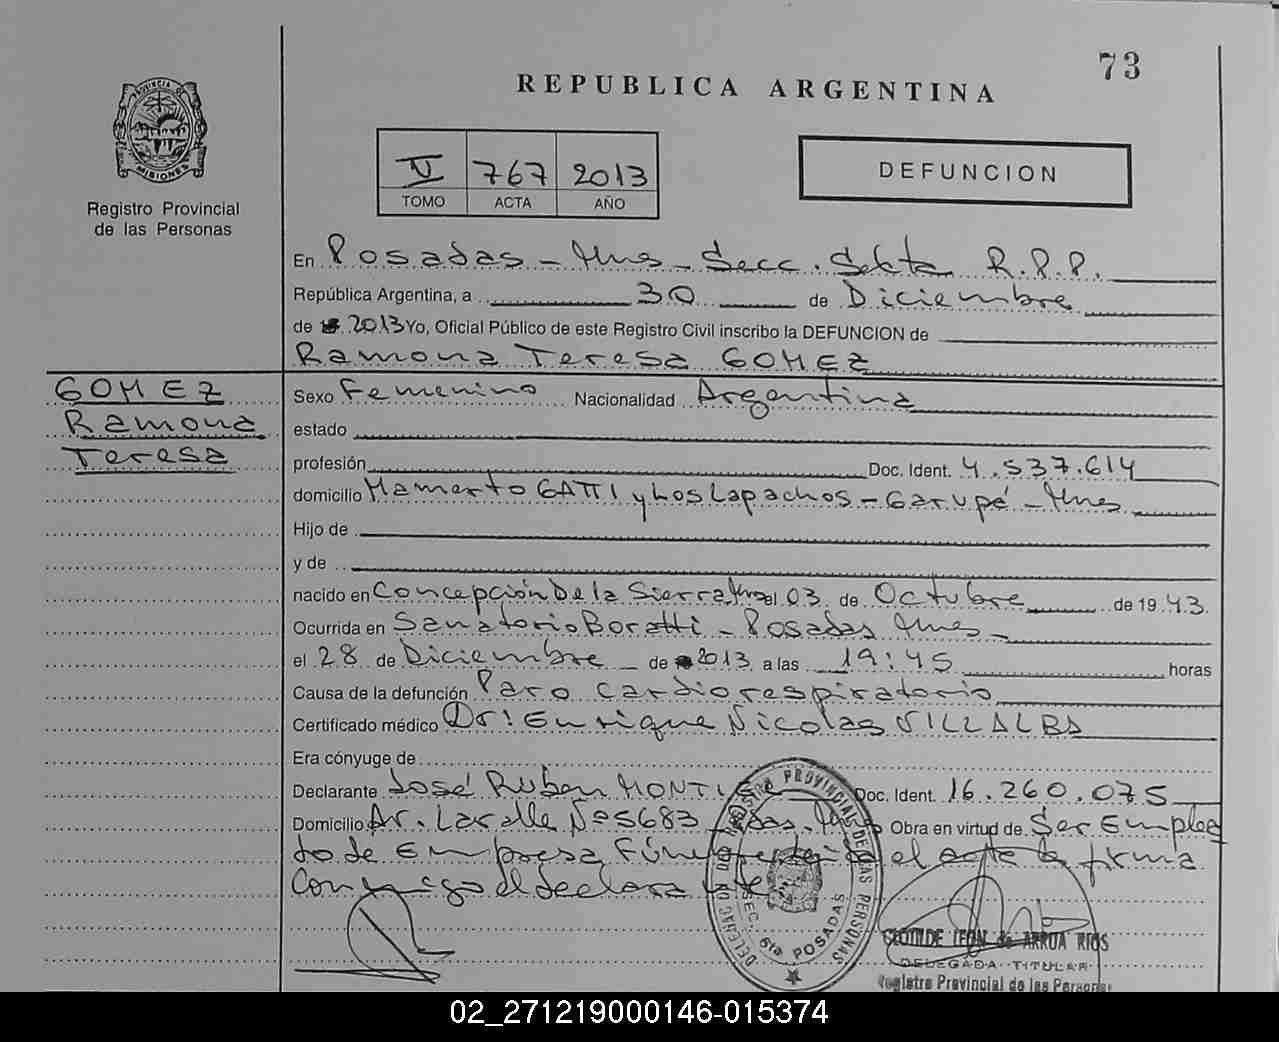 73
REPUBLICA ARGENTINA
PROVINCIA DE
MISIONES
Registro Provincial
de las Personas
V 767 2013
TOMO ACTA AÑO
DEFUNCION
En Posadas - Mnes - Secc. Sexta R.P.P.
República Argentina, a 30 de Diciembre
de 2013 Yo, Oficial Público de este Registro Civil inscribo la DEFUNCION de
Ramona Teresa GOMEZ
GOMEZ
Ramona
Teresa
Sexo Femenino Nacionalidad Argentina
estado
profesión Doc. Ident. 4.537.614
domicilio Mamerto GATTI y Los Lapachos - Garupé - Mnes
Hijo de
y de
nacido en Concepción De la Sierra Mnes el 03 de Octubre de 1943.
Ocurrida en Sanatorio Boratti - Posadas Mnes -
el 28 de Diciembre de 2013 a las 19:45 horas
Causa de la defunción Paro cardiorespiratorio
Certificado médico Dr: Enrique Nicolas VILLALBA
Era cónyuge de
Declarante José Ruben Doc. Ident. 16.260.075
Domicilio Av. Nº 5683 Pdas. Obra en virtud de Ser Emplea
do de Empresa Fúnebre el acta la firma
Conmigo el declarante
PROVINCIAL DE LAS PERSONAS
SEC. 6ta POSADAS
CLOTILDE de ARRUA RIOS
DELEGADA TITULAR
Registro Provincial de las Personas
02_271219000146-015374